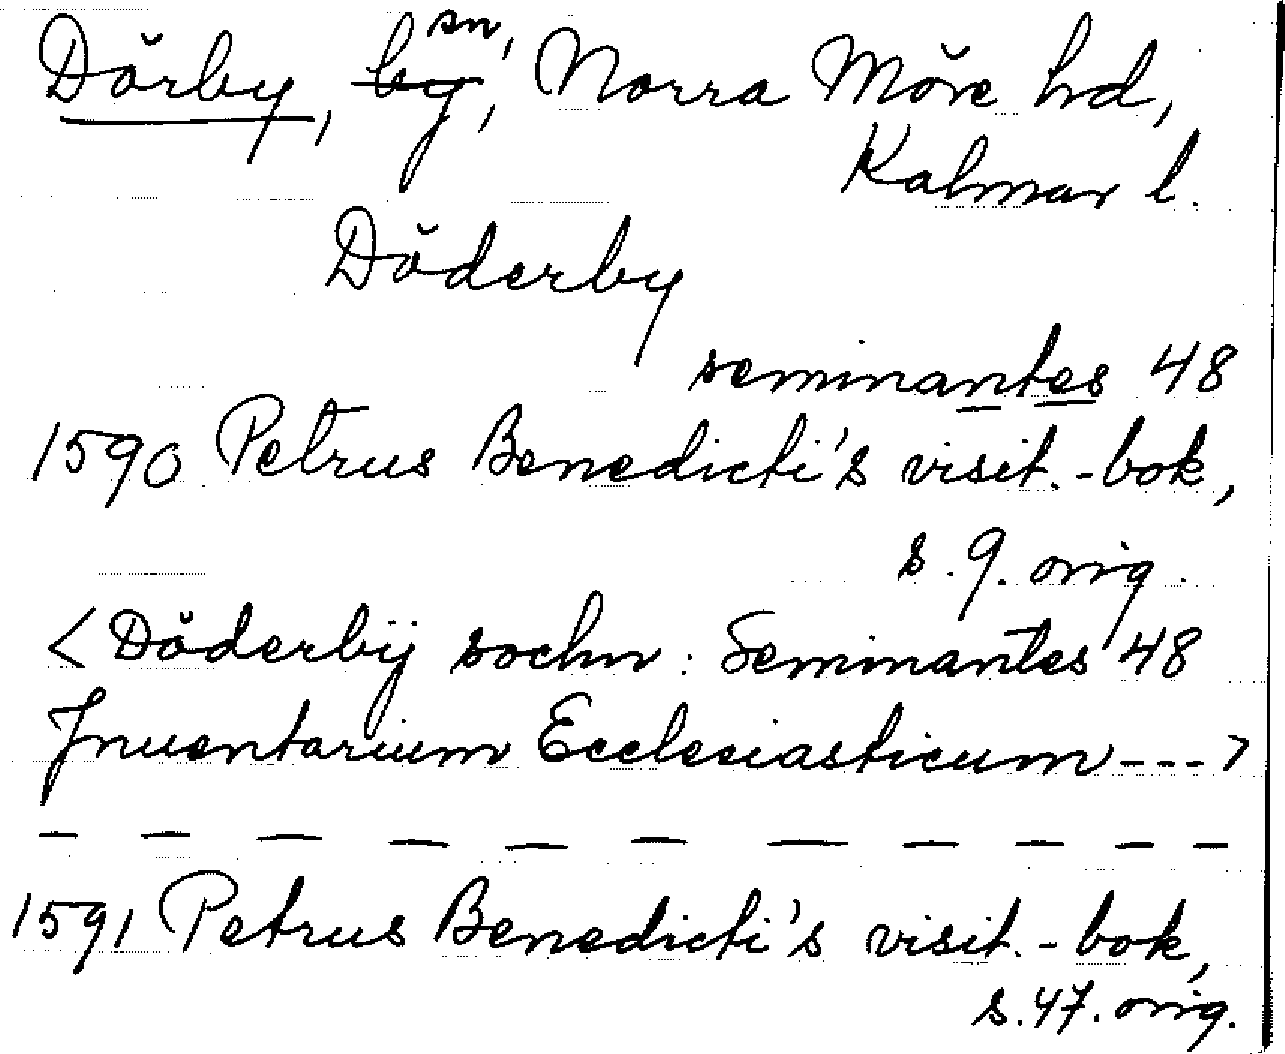 Dörby, by, sn, Norra Möre hd,
Kalmar l.
Döderby
seminantes 48
1590 Petrus Benedicti's visit.-bok,
s. 9. orig.
< Döderbÿ sochn: Seminantes 48
Inuentarium Ecclesiasticum --- >
— — — — — — — — — — —
1591 Petrus Benedicti's visit.-bok,
s. 47. orig.